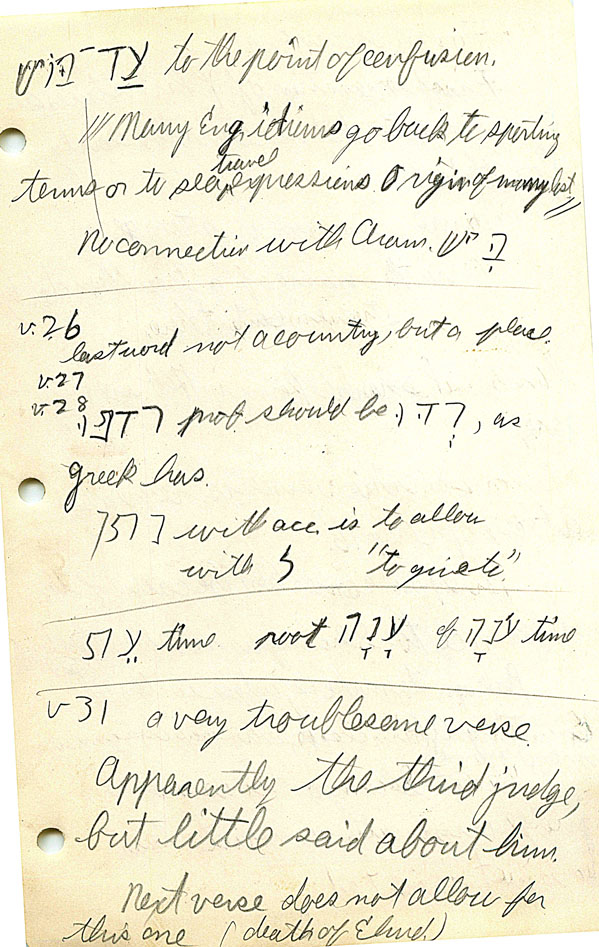 עַד־בּוֹשׁ to the point of confusion.
// Many Eng. idioms go back to sporting
travel
terms or to sea expressions. Origin of many lost //
No connection with Aram.
v.26
last word not a country, but a place.
v.27
v.28 רדפו prob should be רְדוּ, as
Greek has.
נתן with acc. is to allow
with ל "to give to".
עֵת time root עָנָה cf עֹנָה time
v 31 a very troublesome verse.
Apparently the third judge,
but little said about him.
Next verse does not allow for
this one (death of Ehud)